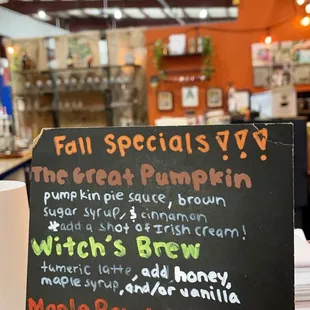 Fall Specials!!!
The Great Pumpkin
pumpkin pie sauce, brown
sugar syrup, & cinnamon
*add a shot of Irish cream!
Witch's Brew
tumeric latte, add honey,
maple syrup, and/or vanilla
Maple